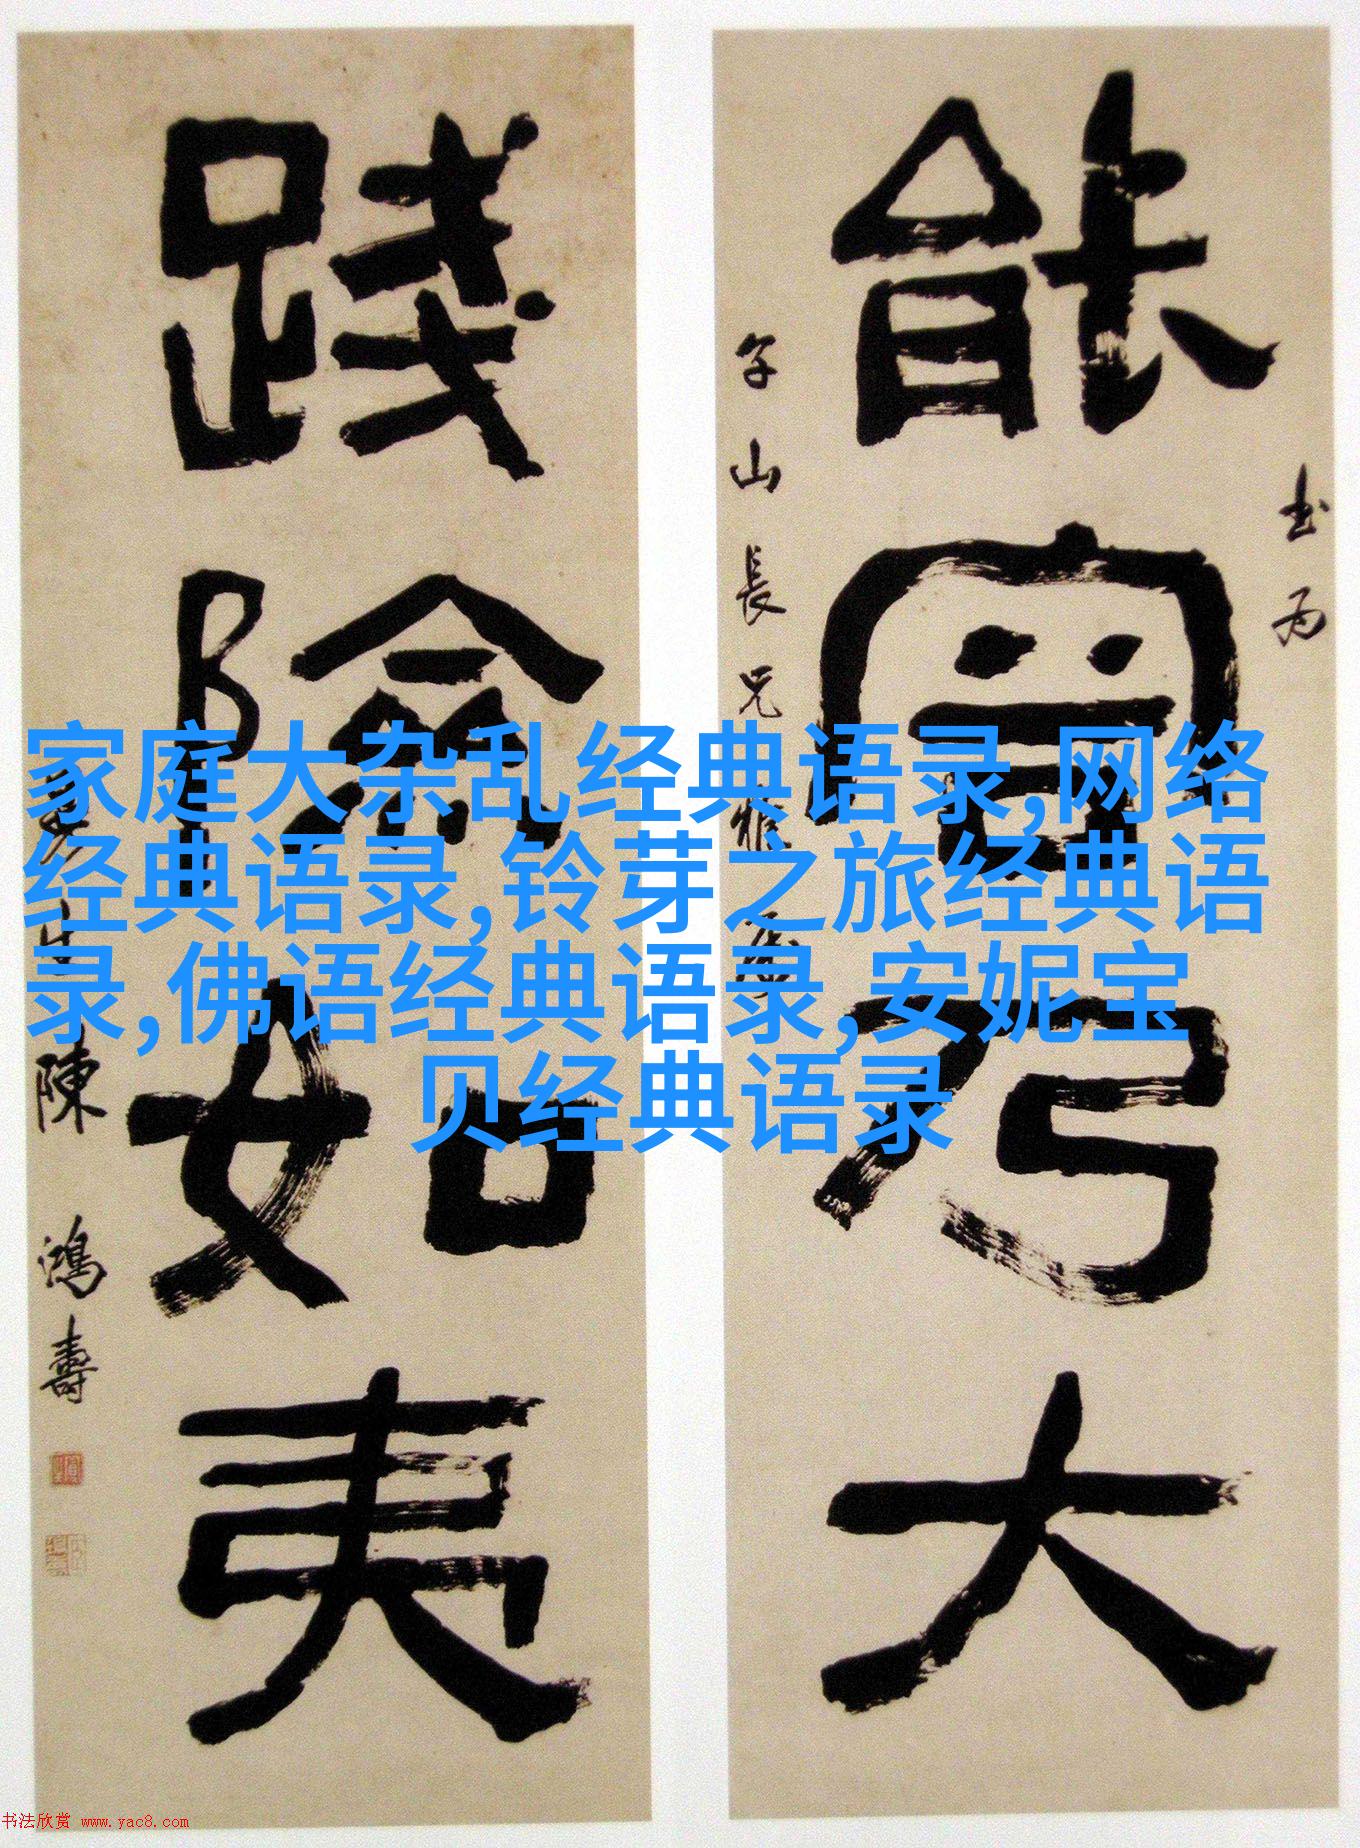 能宵乃大
书为
午山長兄雅属
践險如夷
曼生陳鴻壽
家庭大杂乱经典语录,网络
经典语录,铃芽之旅经典语
录,佛语经典语录,安妮宝
贝经典语录
书法欣赏 www.yac8.com